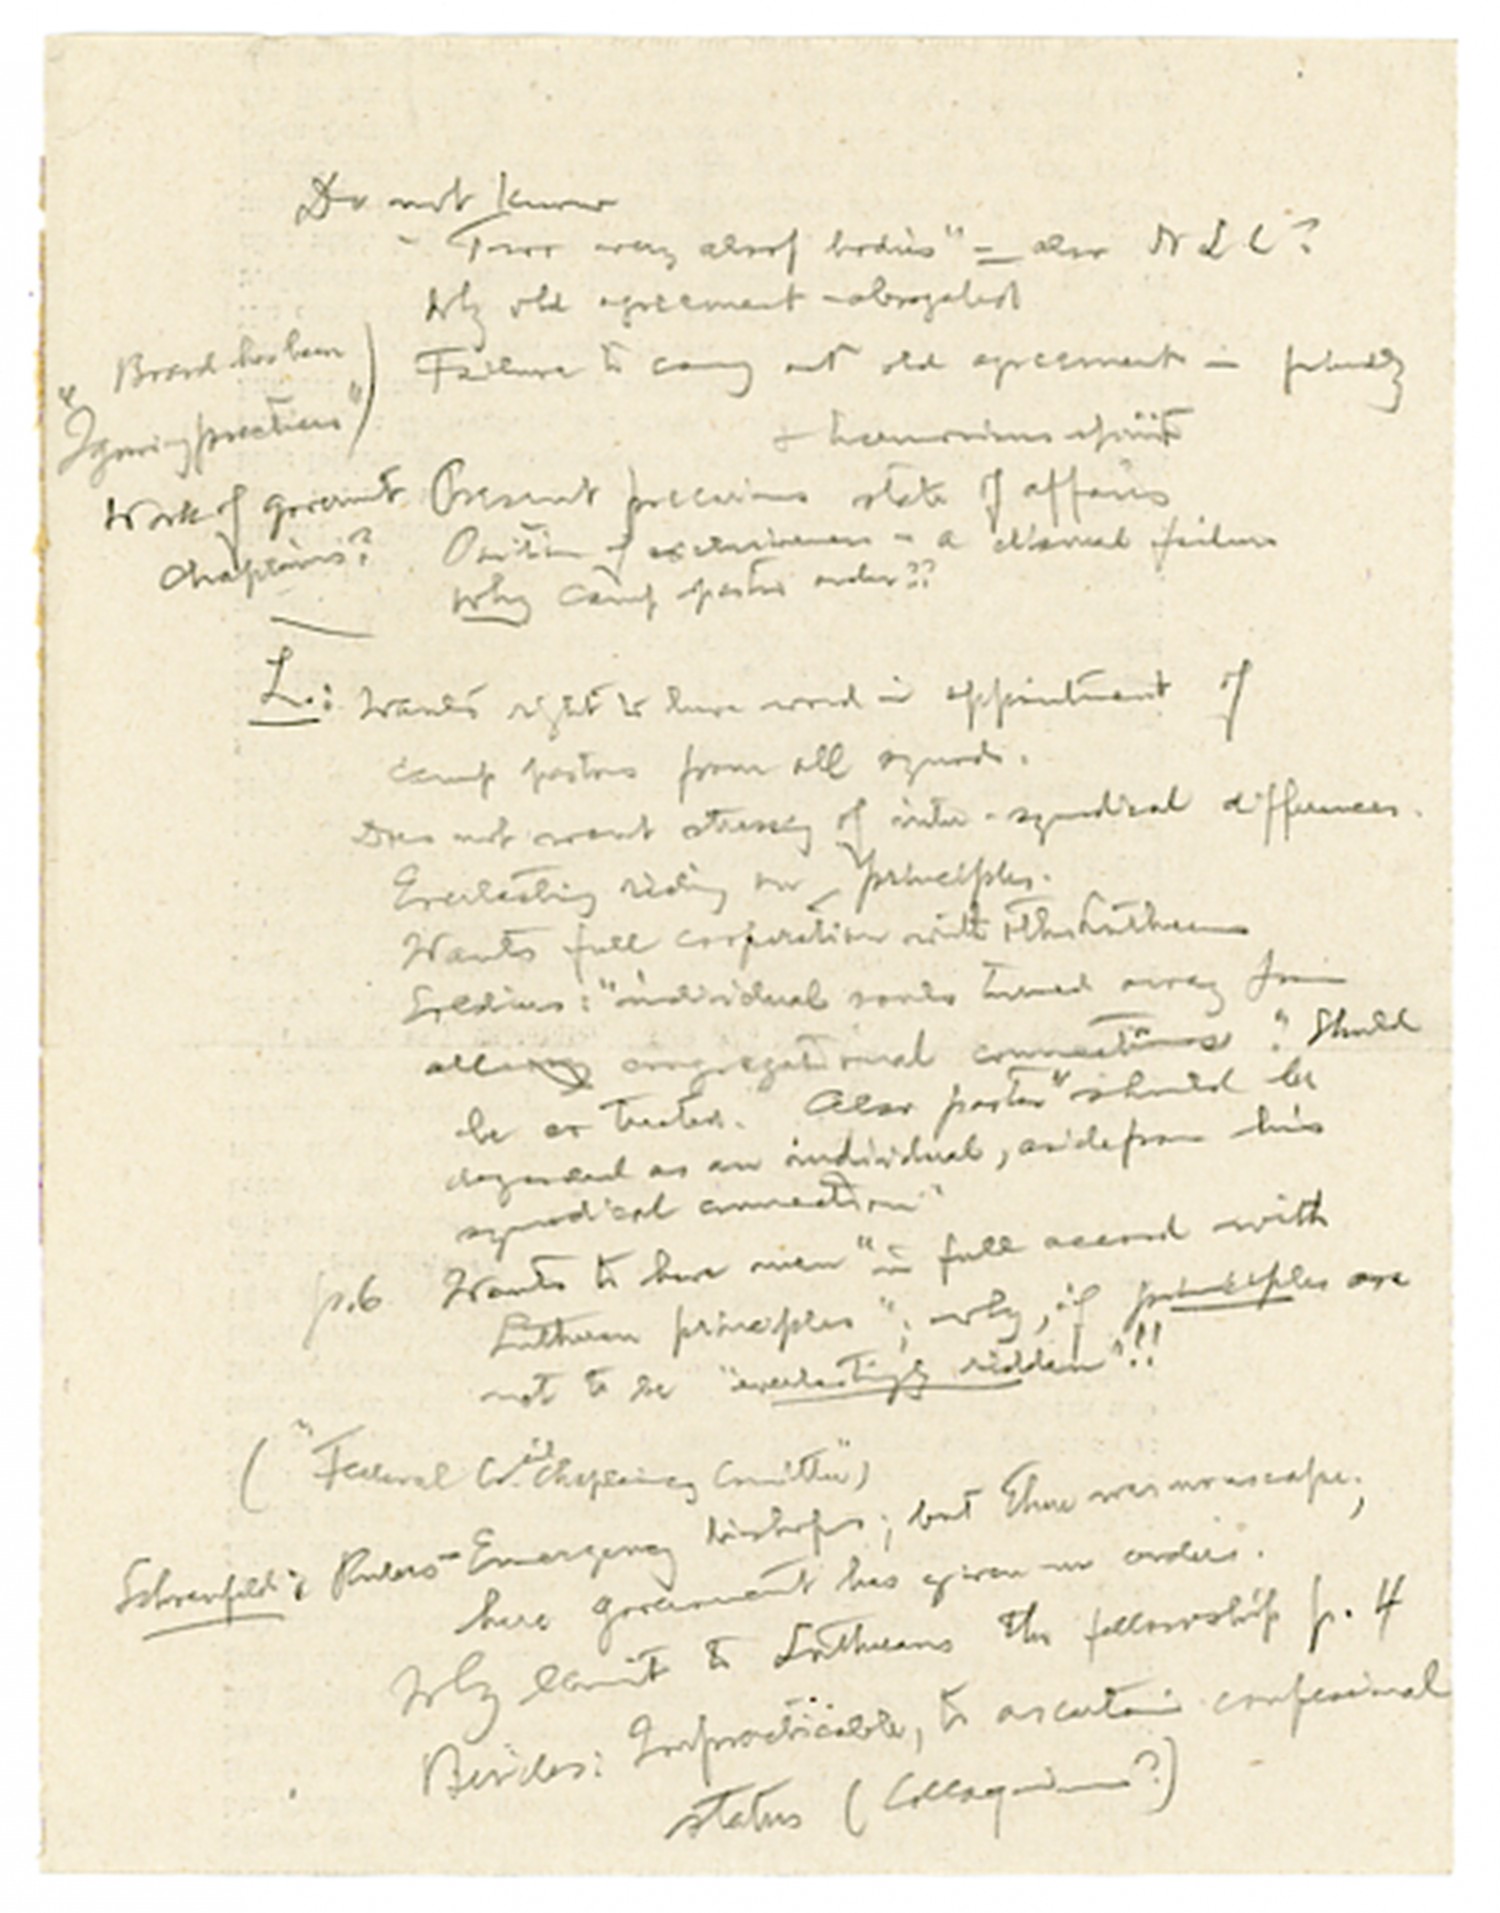 Do not know
"Two very aloof bodies" = also N L C?
Why old agreement abrogated
"Board has been
Ignoring practices")
Failure to carry out old agreement — friendly
+ harmonious spirit
Work of governmt
Chaplains?
Present precarious state of affairs
Position of exclusiveness = a dismal failure
Why Camp pastor order??
L.: Wants right to have word in appointment of
camp pastors from all synods.
Does not want stressing of inter-synodical differences.
Everlasting riding on principles.
Wants full cooperation with other Lutherans
Soldiers: "individual souls turned away from
all congregational connections"? Should
be so treated. Also pastor "should be
regarded as an individual, aside from his
synodical connection"
p.6 Wants to have men "in full accord with
Lutheran principles"; why, if principles are
not to be "everlastingly ridden"!!
("Federal Co.cil Chaplaincy Comittee")
Emergency bishops; but there was no escape;
here government has given no orders.
Why limit to Lutherans the fellowship p. 4
Besides: Impracticable, to ascertain confessional
status (Colloquium?)